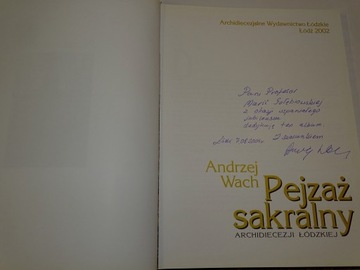 Archidiecezjalne Wydawnictwo Łódzkie
Łódź 2002
Pani Profesor
Marii Gołębiowskiej
z okazji wspaniałego
jubileuszu
dedykuję ten album
z szacunkiem
Andrzej
Wach
Pejzaż
sakralny
ARCHIDIECEZJI ŁÓDZKIEJ